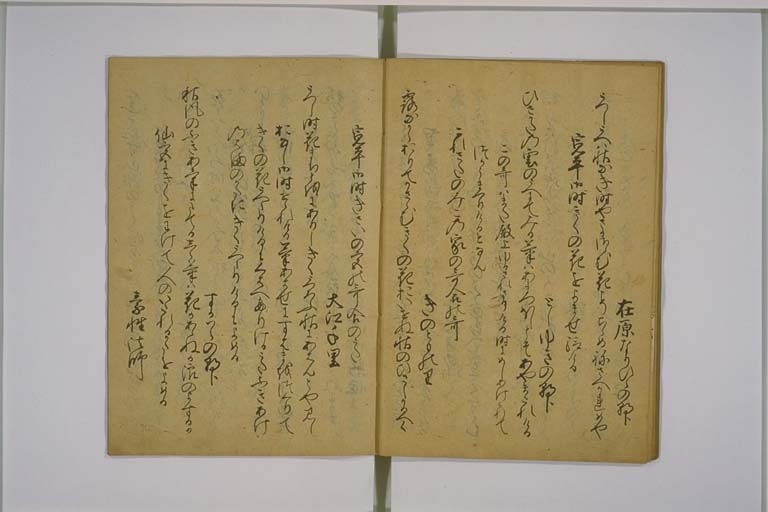 在原なりひらの朝臣
うへし植は秋なき時やさかさらむ花こそちらめ根さへかれめや
寛平御時きくの花をよませ給ける
としゆきの朝臣
ひさかたの雲のうへにてみる菊はあまつほしとそあやまたれける
この哥はまた殿上ゆるされさりける時にめしあけられて
つかうまつりけるとなん
これさたのみこの家の哥合の哥
きのとものり
露なからおりてかさゝむきくの花おいせぬ秋のひさしかるへく
寛平御時きさいの宮の哥合のうた
大江千里
うへし時花まちとをにありしきくうつろふ秋にあはんとやみし
おなし御時せられける菊あはせにすはまをつくりて
きくの花うへたりけるにくはへたりけるうたふきあけ
のはまのかたにきくうへたりけるをよめる
すかはらの朝臣
秋風のふきあけにたてるしら菊は花かあらぬか浪のよするか
仙宮にきくをわけて人のいたれるかたをよめる
素性法師